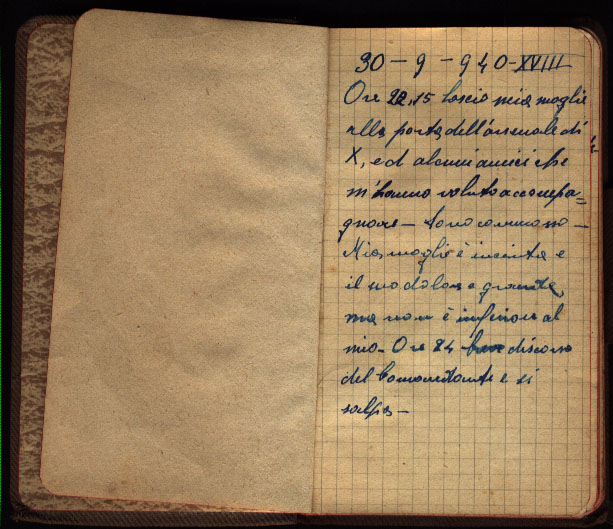 30 - 9 - 940 - XVIII
Ore 22,15 lascio mia moglie
alla porta dell'arsenale di
X, ed alcuni amici che
m'hanno voluto accompa=
gnare - sono commosso -
Mia moglie è incinta e
il suo dolore è grande,
ma non è inferiore al
mio - Ore 24 discorso
del Comandante e si
salpa -